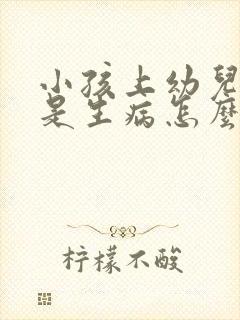 小孩上幼兒
是生病怎麼
柠檬不酸